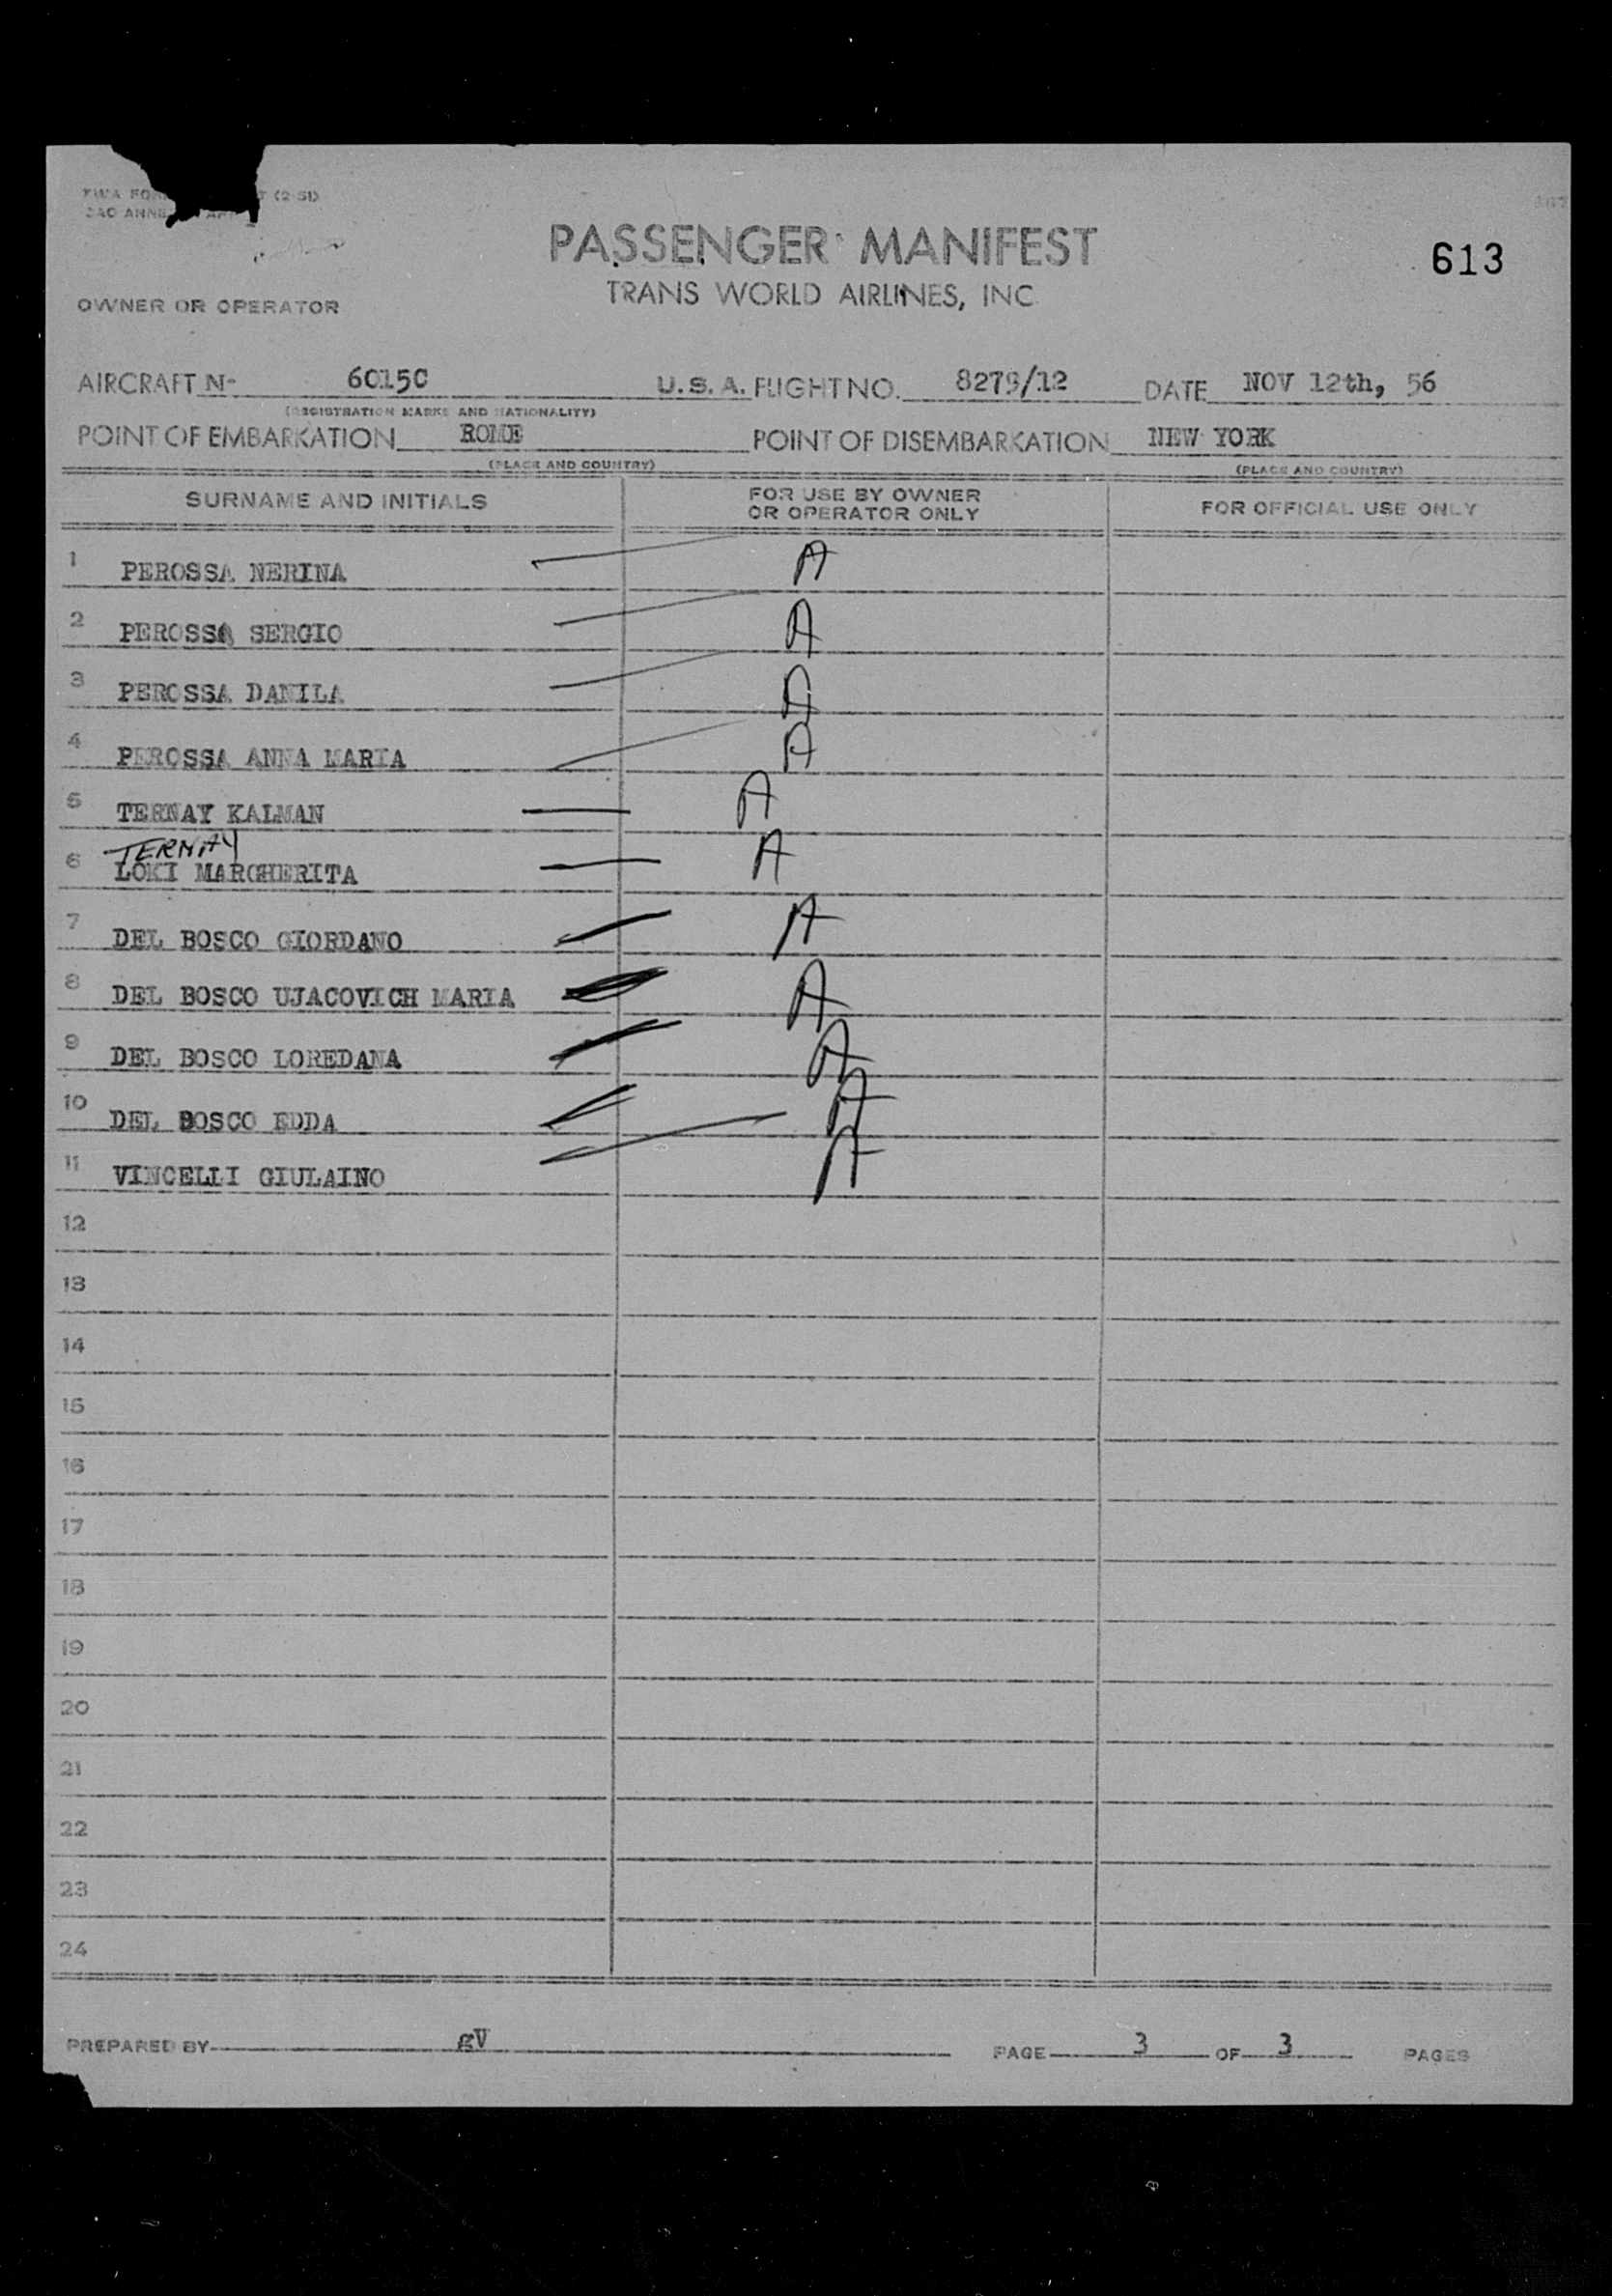 (2-51)
PASSENGER MANIFEST
613
TRANS WORLD AIRLINES, INC.
OWNER OR OPERATOR
AIRCRAFT Nº 6015C U.S.A. FLIGHT NO. 8279/12 DATE NOV 12th, 56
(REGISTRATION MARKS AND NATIONALITY)
POINT OF EMBARKATION ROME POINT OF DISEMBARKATION NEW YORK
(PLACE AND COUNTRY) (PLACE AND COUNTRY)
SURNAME AND INITIALS FOR USE BY OWNER OR OPERATOR ONLY FOR OFFICIAL USE ONLY
1 PEROSSA NERINA A
2 PEROSSA SERGIO A
3 PEROSSA DANILA A
4 PEROSSA ANNA MARIA A
5 TERNAY KALMAN A
TERNAY
6 LOKI MARGHERITA A
7 DEL BOSCO GIORDANO A
8 DEL BOSCO UJACOVICH MARIA A
9 DEL BOSCO LOREDANA A
10 DEL BOSCO EDDA A
11 VINCELLI GIULAINO A
12
13
14
15
16
17
18
19
20
21
22
23
24
PREPARED BY gV PAGE 3 OF 3 PAGES